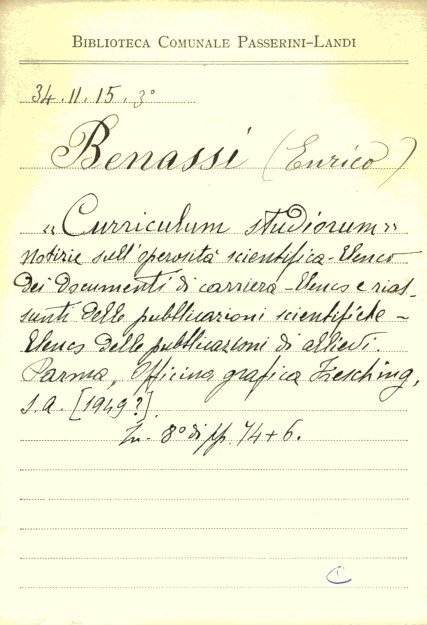 BIBLIOTECA COMUNALE PASSERINI-LANDI
34.11.15.3°
Benassi (Enrico)
"Curriculum studiorum"
Notizie sull'operosità scientifica - Elenco
dei documenti di carriera - Elenco e rias-
sunti delle pubblicazioni scientifiche -
Elenco delle pubblicazioni di allievi.
Parma, Officina grafica Fresching,
s.a. [1949?].
In - 8° di pp. 74+6.